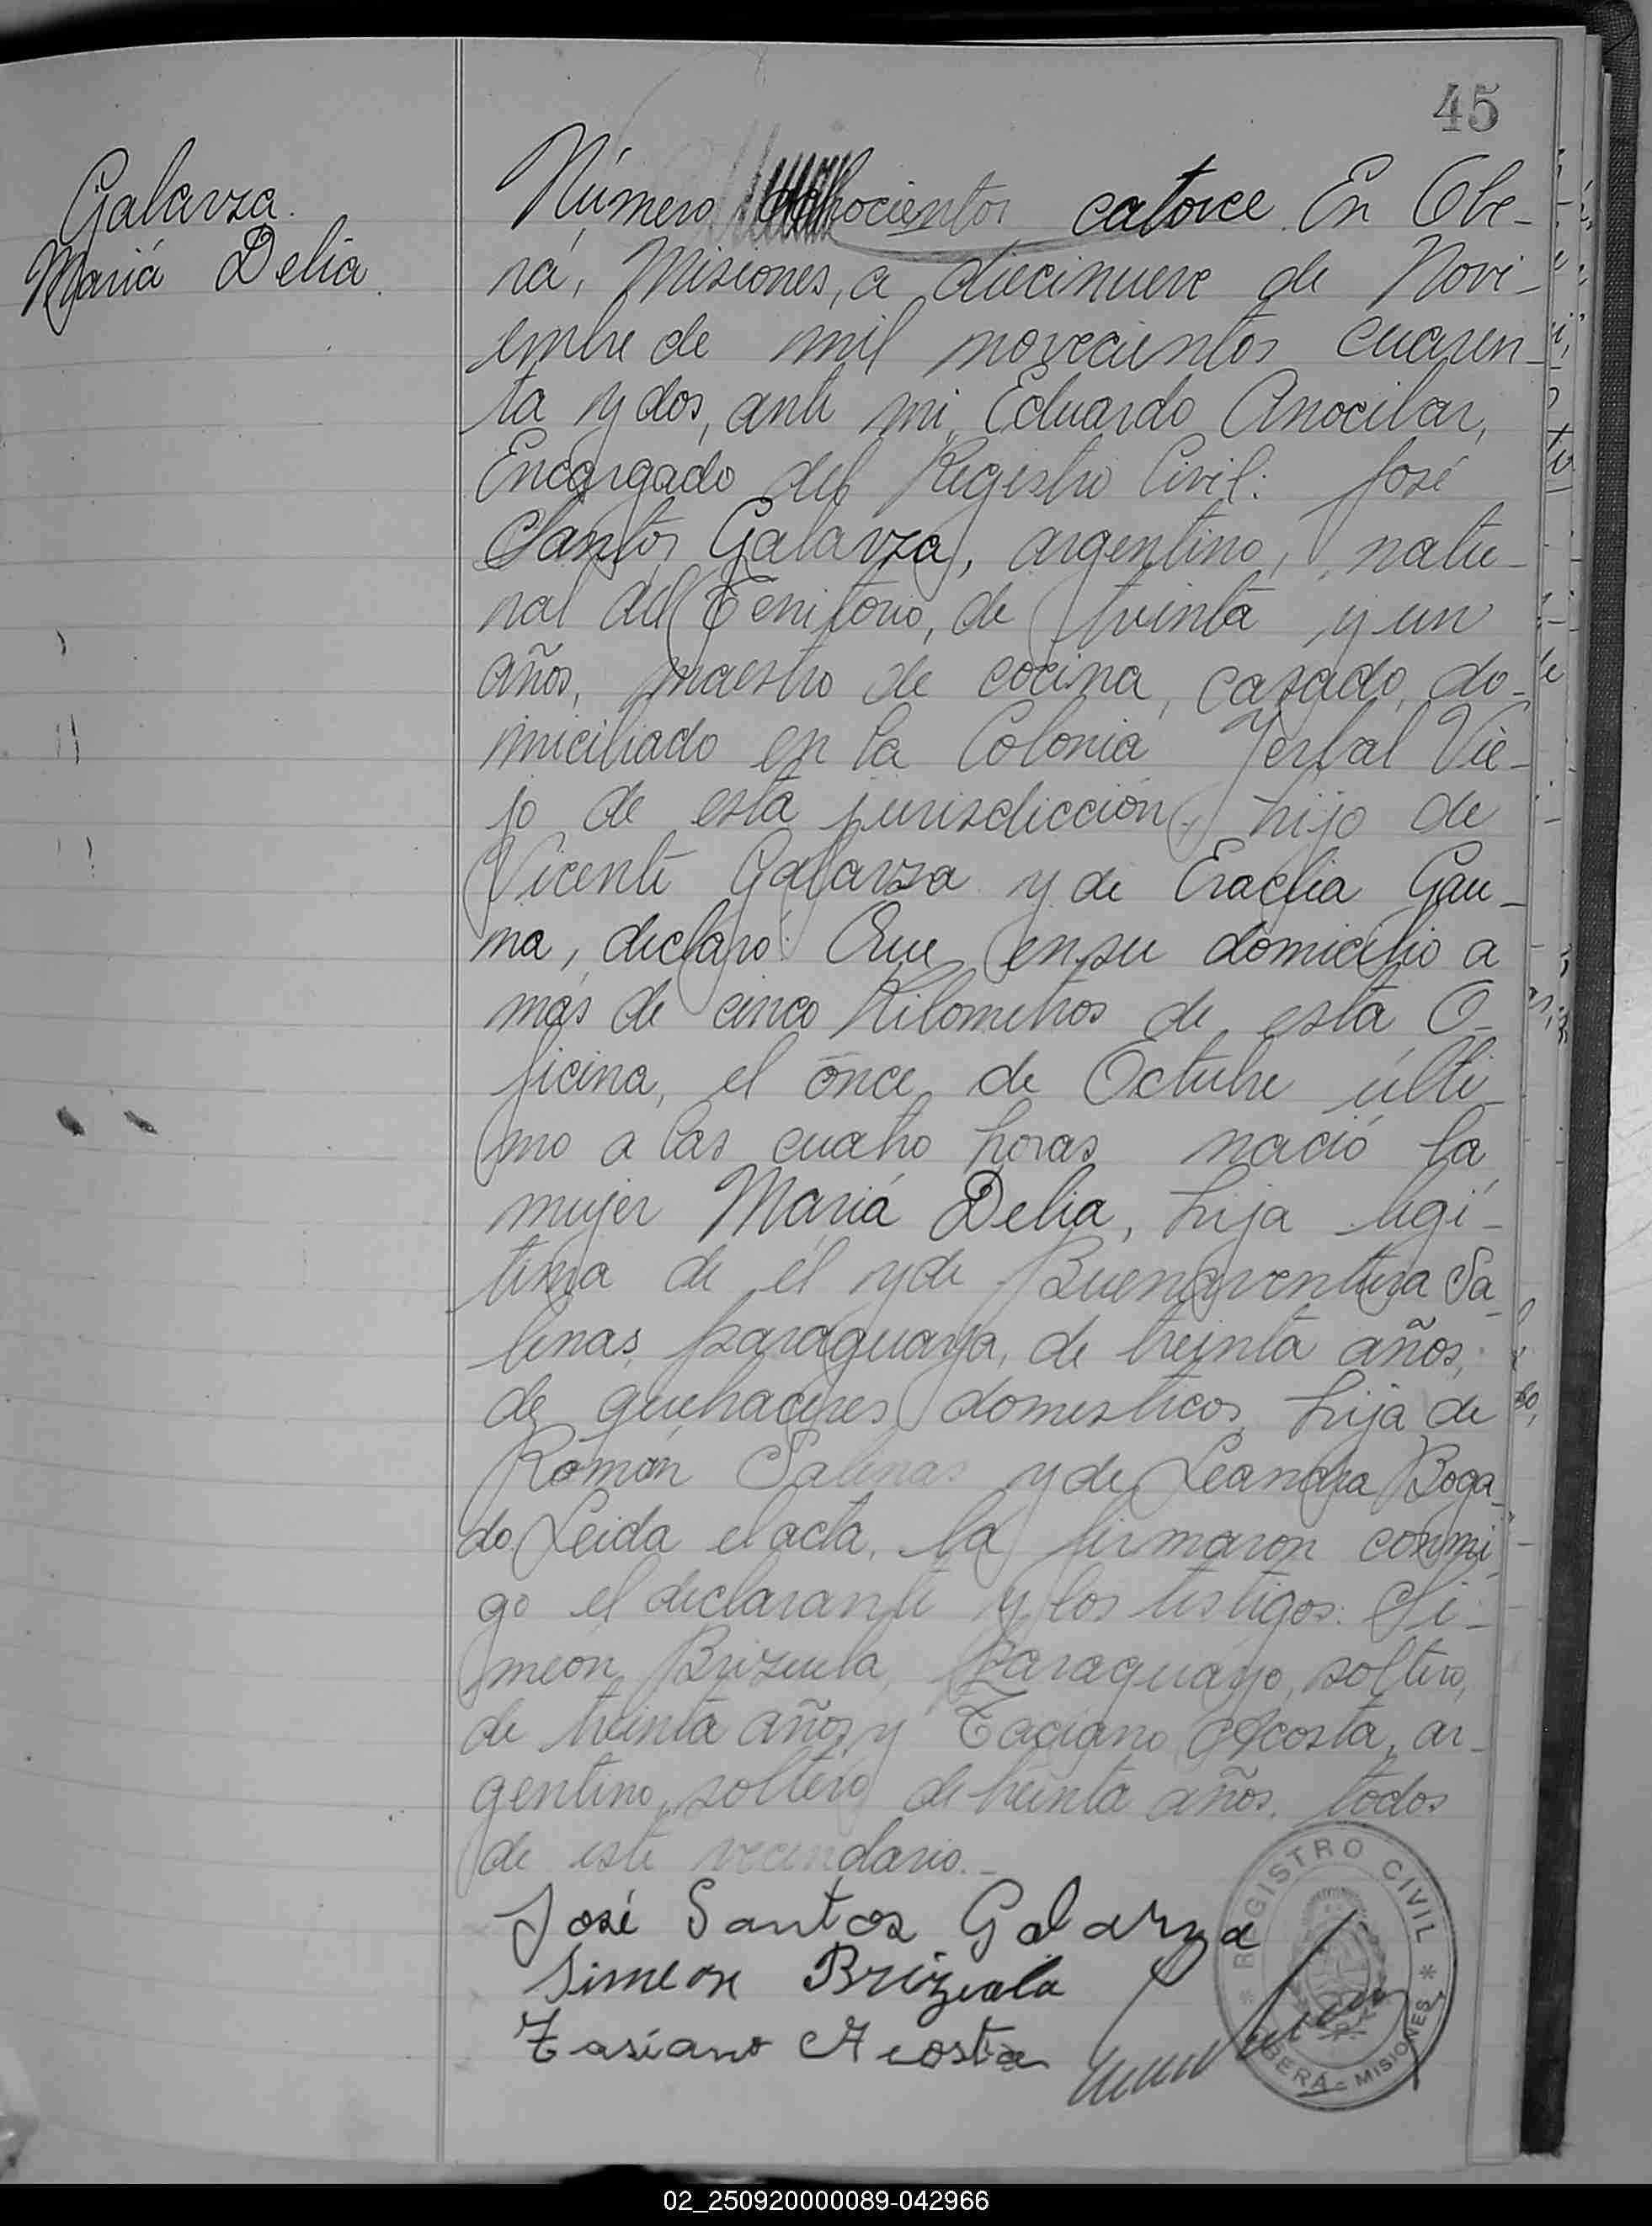 45
Galarza
María Delia
Número ochocientos catorce. En Obe-
rá, Misiones, a diecinueve de Novi-
embre de mil novecientos cuaren-
ta y dos, ante mi, Eduardo Anocibar,
Encargado del Registro Civil: José
Santos Galarza, argentino, natu-
ral del Territorio, de treinta y un
años, maestro de cocina, casado, do-
miciliado en la Colonia Yerbal Vie-
jo de esta jurisdicción, hijo de
Vicente Galarza y de Eraclia Gau-
na, declaró: Que en su domicilio a
más de cinco Kilometros de esta O-
ficina, el once de Octubre últi-
mo a las cuatro horas nació la
mujer María Delia, hija legí-
tima de él y de Buenaventura Sa-
linas, paraguaya, de treinta años,
de quehaceres domesticos, hija de
Román Salinas y de Leandra Boga-
do. Leida el acta, la firmaron conmi-
go el declarante y los testigos: Si-
meon Brizuela, Paraguayo, soltero,
de treinta años y Taciano Acosta, ar-
gentino, soltero de treinta años, todos
de este vecindario.-
José Santos Galarza
Simeon Brizuela
Tasiano Acosta
REGISTRO CIVIL
OBERÁ - MISIONES
02_250920000089-042966